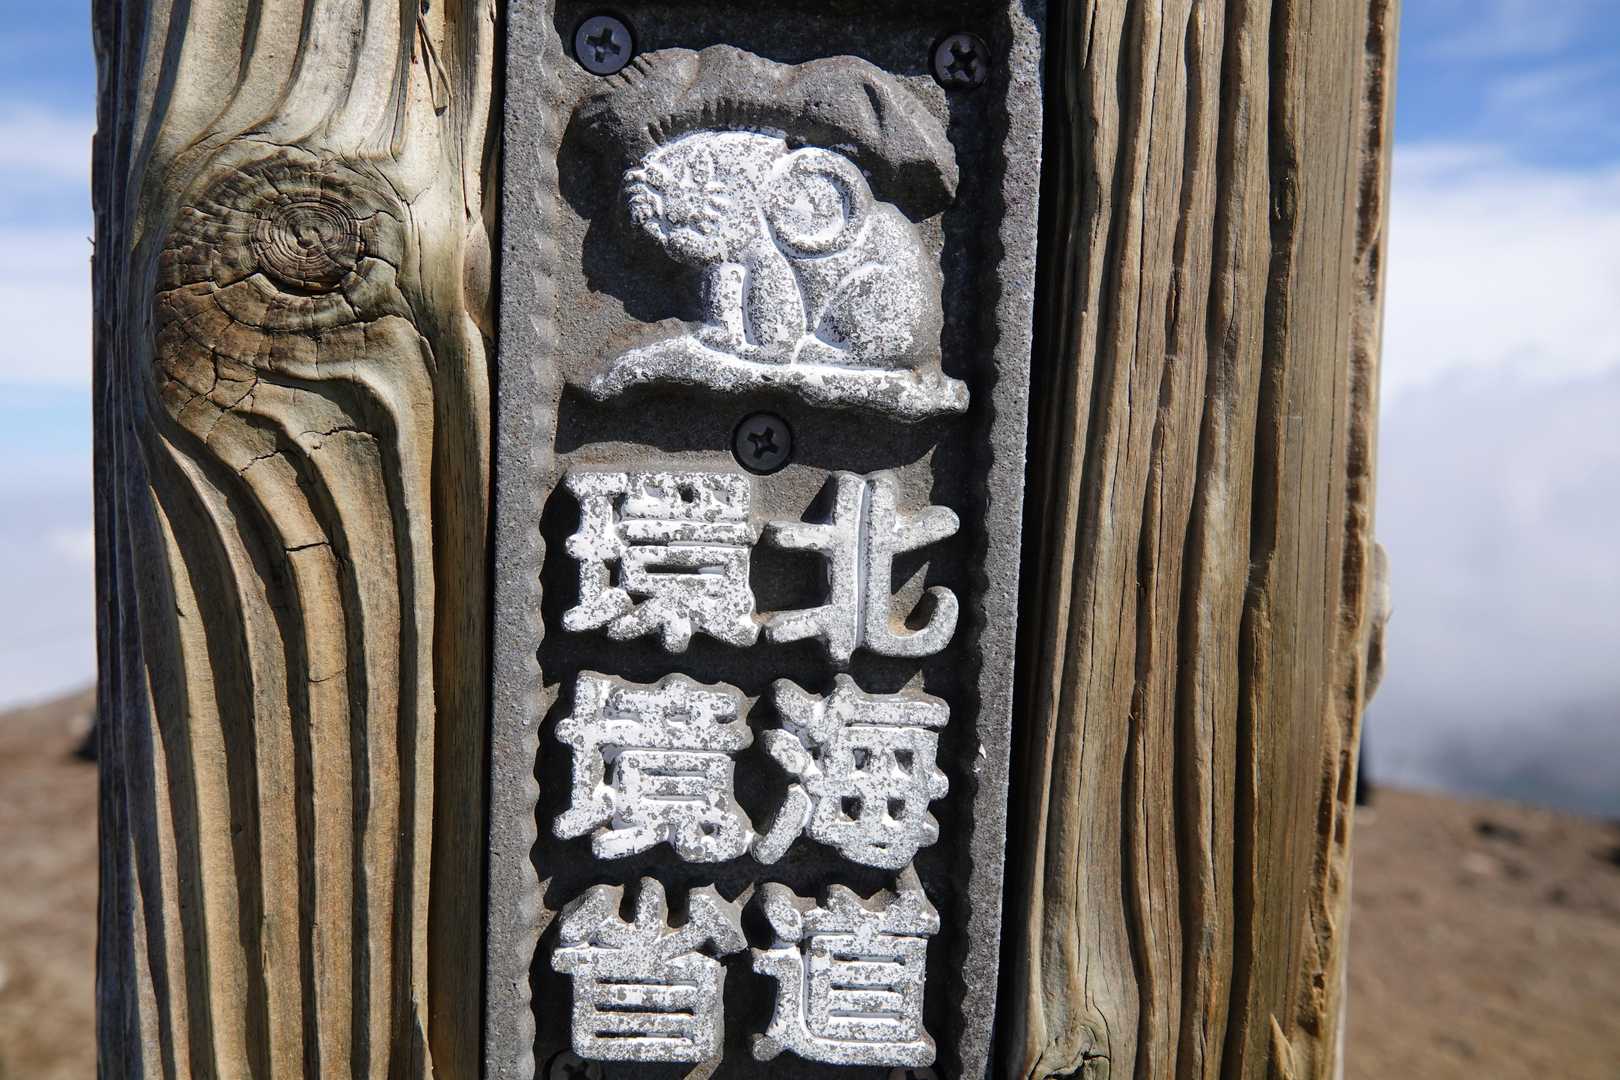 北海道
環境省